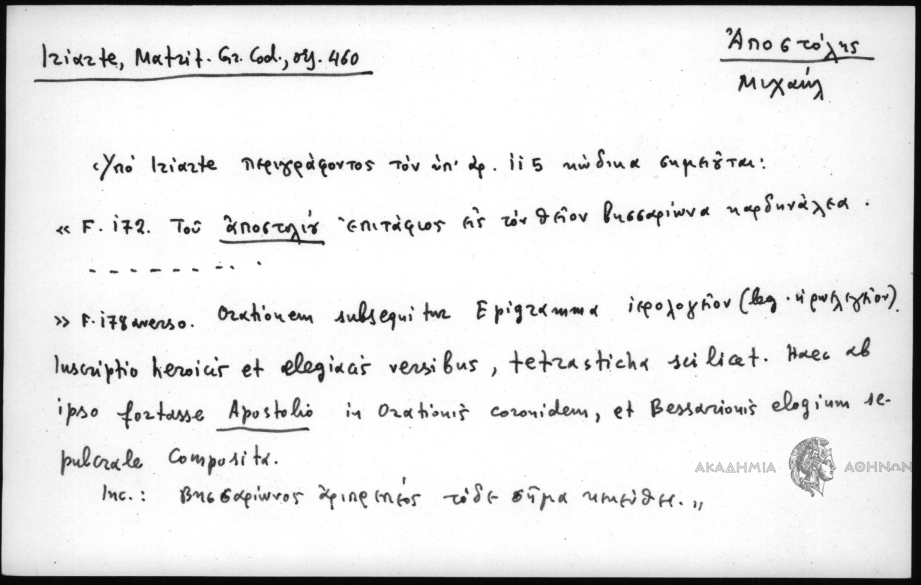 Iriarte, Matrit. Gr. Cod., σ. 460
Ἀποστόλης
Μιχαήλ
Ὑπὸ Iriarte περιγράφοντος τὸν ὑπ' ἀρ. 115 κώδικα σημειοῦται:
« F. 172. Τοῦ ἀποστολίου ἐπιτάφιος εἰς τὸν θεῖον βησσαρίωνα καρδηνάλεα.
- - - - - - - - .
» F. 178 averso. Orationem subsequitur Epigramma ἱερολογεῖον (leg. ἡρωελεγεῖον).
Inscriptio heroicis et elegiacis versibus, tetrasticha scilicet. Haec ab
ipso fortasse Apostolio in Orationis coronidem, et Bessarionis elogium se-
pulcrale Composita.
ΑΚΑΔΗΜΙΑ ΑΘΗΝΩΝ
Inc.: Βησσαρίωνος ἀριπρεπέος τόδε σῆμα . „